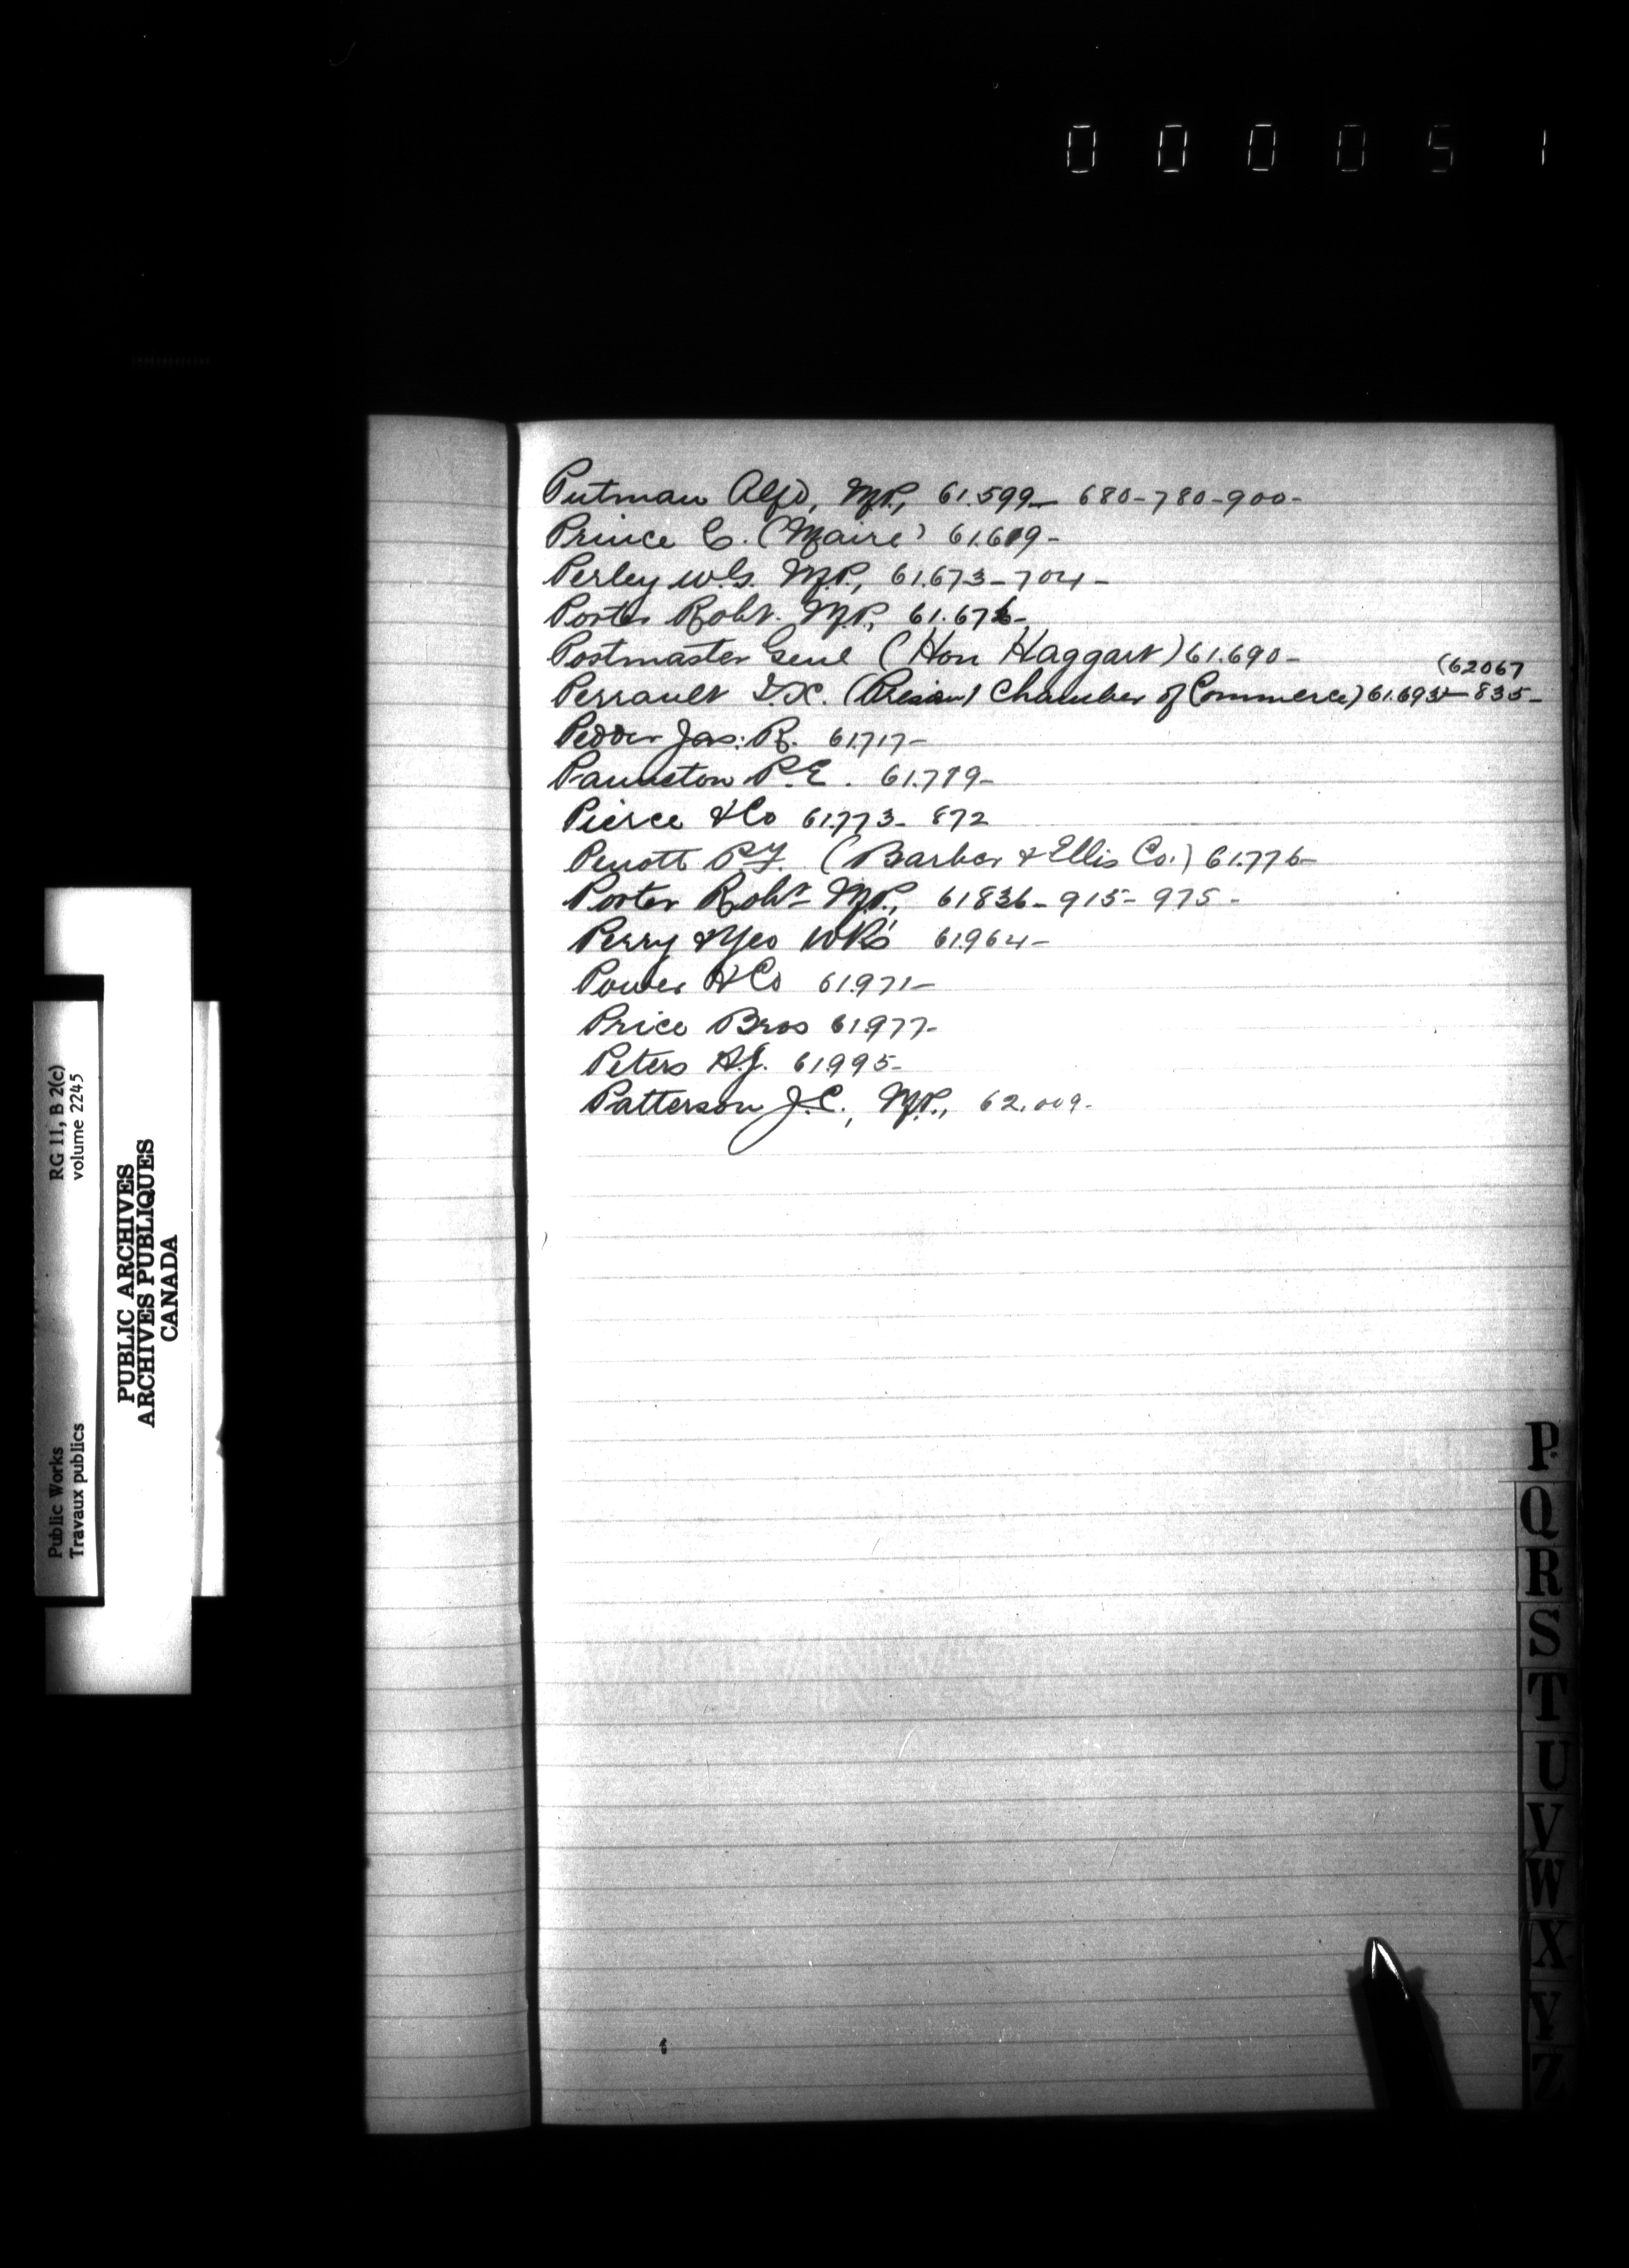 000051
Putman Alfd, M.P., 61.599- 680-780-900-
Prince E. (Maire) 61.619-
Perley W.G. M.P., 61.673-704-
Porter Robt. M.P., 61.676-
Postmaster Genl (Hon Haggart) 61.690-
(62067
Perrault J.X. Chamber of Commerce) 61.693- 835-
Pedder Jas. R. 61.717-
P.E. 61.719-
Pierce & Co 61.773- 872
P.F. (Barber & Ellis Co.) 61.776-
Porter Robt M.P., 61836- 915- 975-
Perry & Yeo 61.964-
Power & Co 61.971-
Price Bros 61977-
Peters A.J. 61995-
Patterson J.C., M.P., 62.009-
P
Q
R
S
T
U
V
W
X
Y
Z
Public Works
Travaux publics
RG 11, B 2(c)
volume 2245
PUBLIC ARCHIVES
ARCHIVES PUBLIQUES
CANADA